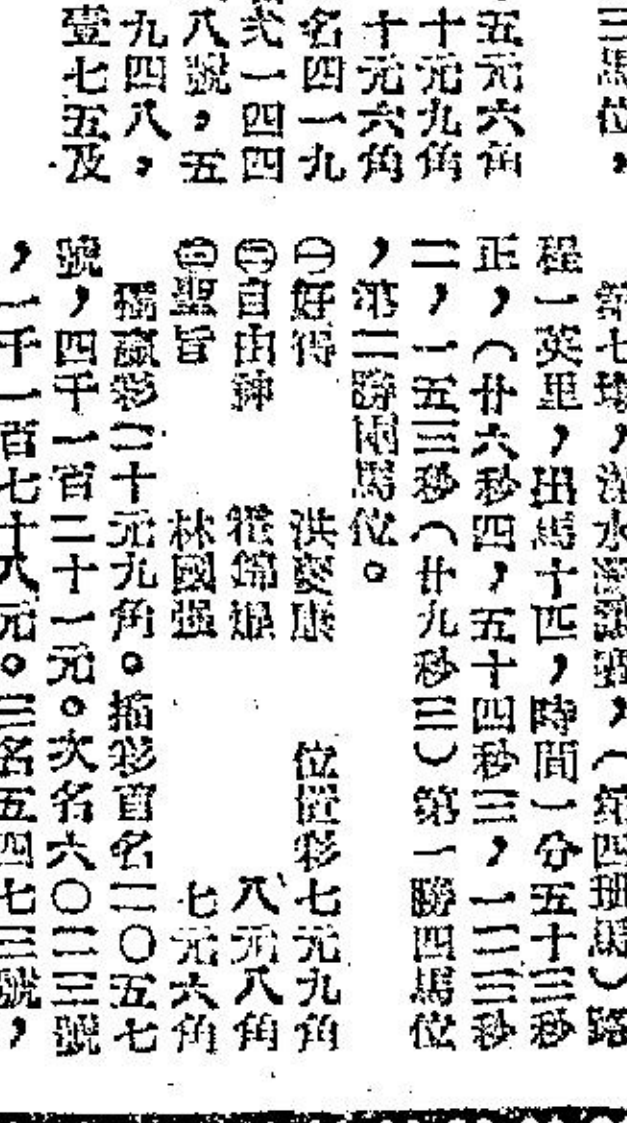 三馬位，
五元六角
十元九角
十元六角
名四一九
弍一四四
八號，五
九四八，
壹七五及
第七塲，水讓賽，（第四班馬）路
程一英里，出馬十匹，時間一分五十三秒
正，（廿六秒四，五十四秒三，一二三秒
二，一五三秒（廿九秒三）第一勝四馬位
，第二勝兩馬位。
㊀好得　洪康　位置彩七元九角
㊁自由神　錦　八元八角
㊂聖旨　林國强　七元六角
獨贏彩二十元九角。搖彩首名二〇五七
號，四千一百二十一元。次名六〇二三號
，一千一百七十八元。三名五四七三號，